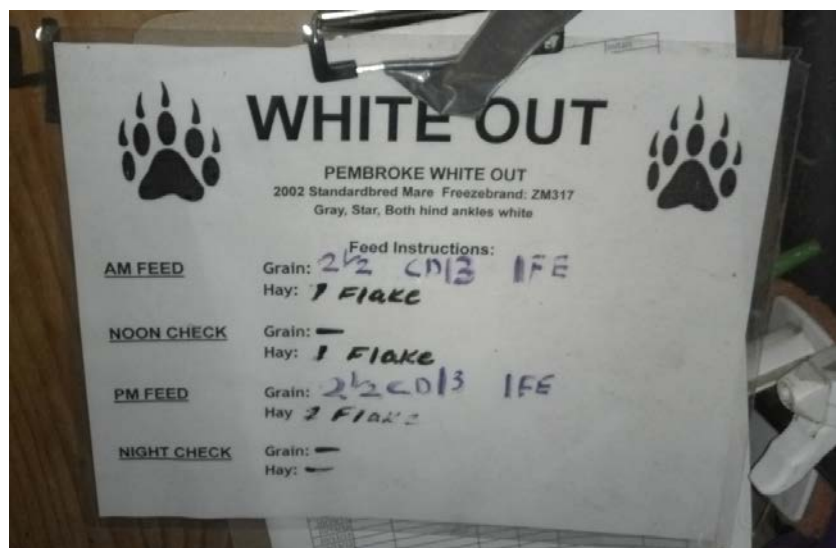 WHITE OUT
PEMBROKE WHITE OUT
2002 Standardbred Mare Freezebrand: ZM317
Gray, Star, Both hind ankles white
Feed Instructions:
AM FEED Grain: 2 1/2 CD13 1FE
Hay: 1 Flake
NOON CHECK Grain: —
Hay: 1 Flake
PM FEED Grain: 2 1/2 CD13 1FE
Hay 2 Flake
NIGHT CHECK Grain: —
Hay: —